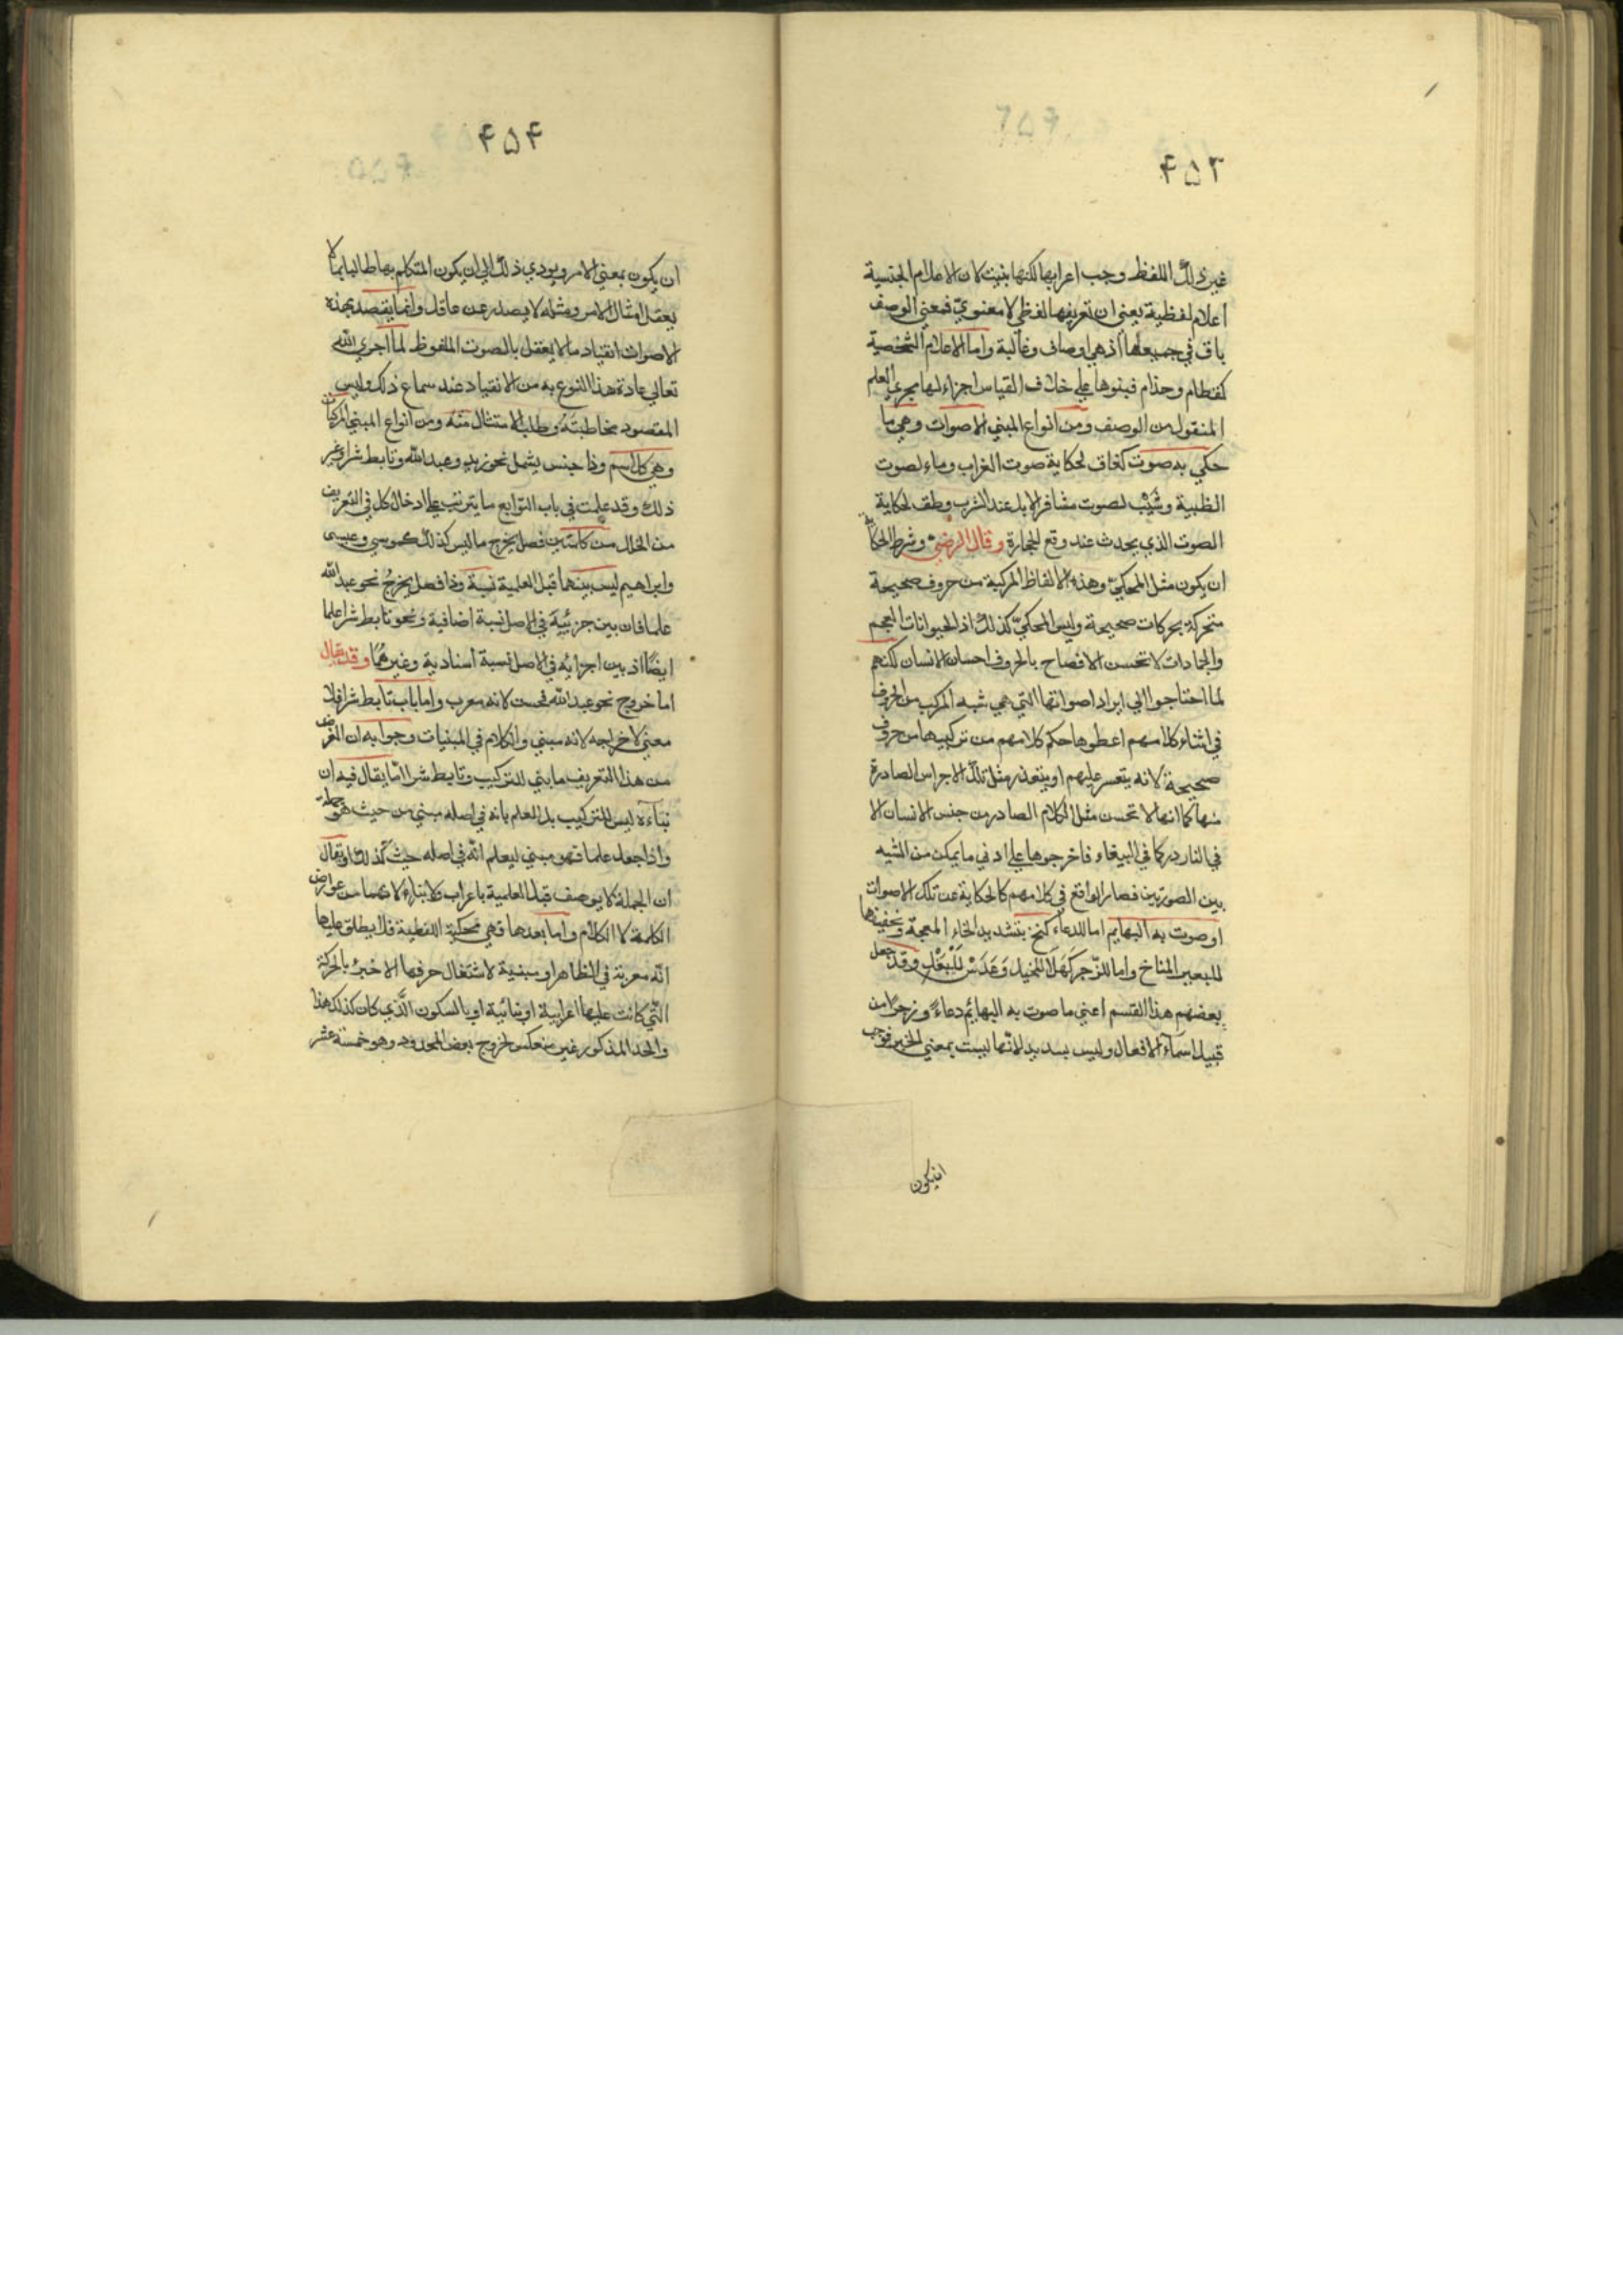 ۴۵۳
غير ذلك اللفظ وجب اعرابها لكنها بنيت لان الاعلام الجنسية
اعلام لفظية يعني ان تعريفها لفظي لا معنوي فمعني الوصف
باق في جميعها اذ هي اوصاف وغالبة واما الاعلام الشخصية
كفطام وحذام فبنوها علي خلاف القياس اجراء لها مجري العلم
المنقول من الوصف ومن انواع المبني الاصوات وهي ما
حكي به صوت كغاق لحكاية صوت الغراب وماء لصوت
الظبية وشيب لصوت مشافر الابل عند الشرب وطق لحكاية
الصوت الذي يحدث عند وقع الحجارة وقال الرضي وشرط الحكاية
ان يكون مثل المحكي وهذه الالفاظ المركبة من حروف صحيحة
متحركة بحركات صحيحة وليس المحكي كذلك اذ الحيوانات العجم
والجمادات لا تحسن الافصاح بالحروف احسان الانسان لكنهم
لما احتاجوا الي ايراد اصواتها التي هي شبه المركب من الحروف
في اثناء كلامهم اعطوها حكم كلامهم من تركيبها من حروف
صحيحة لانه يتعسر عليهم او يتعذر مثل تلك الاجراس الصادرة
منها كما انها لا تحسن مثل الكلام الصادر من جنس الانسان الا
في النادر كما في الببغاء فاخرجوها علي ادني ما يمكن من الشبه
بين الصورتين فصار الواقع في كلامهم كالحكاية عن تلك الاصوات
او صوت به البهايم اما للدعاء كنخ بتشديد الخاء المعجمة وتخفيفها
للبعير المناخ واما للزجر كهلا للخيل وعدس للبغل وقد جعل
بعضهم هذا القسم اعني ما صوت به البهائم دعاء وزجرا من
قبيل اسماء الافعال وليس بسديد لانها ليست بمعني الخبر فوجب
ان يكون
۴۵۴
ان يكون بمعني الامر ويودي ذلك الي ان يكون المتكلم بها طالبا بما لا
يعقل امثال الامر ومثله لا يصدر عن عاقل وانما يقصد بهذه
الاصوات انقياد ما لا يعقل بالصوت الملفوظ لما اجري الله
تعالي عادة هذا النوع به من الانقياد عند سماع ذلك وليس
المقصود مخاطبته وطلب الامتثال منه ومن انواع المبني المركبات
وهي كل اسم وذا جنس يشمل نحو زيد وعبد الله وتابط شرا وغير
ذلك وقد علمت في باب التوابع ما يترتب علي ادخال كل في التعريف
من الخلل من كلمتين فصل يخرج ما ليس كذلك كموسي وعيسي
وابراهيم ليس بينهما قبل العلمية نسبة وذا فصل يخرج نحو عبد الله
علما فان بين جزئيه في الاصل نسبة اضافية ونحو تابط شرا علما
ايضا اذ بين اجزايه في الاصل نسبة اسنادية وغيرهما وقد يقال
اما خروج نحو عبد الله فحسن لانه معرب واما باب تابط شرا فلا
معني لاخراجه لانه مبني والكلام في المبنيات وجوابه ان الغرض
من هذا التعريف ما بني للتركيب وتابط شرا انما يقال فيه ان
بناءه ليس للتركيب بل العلم بانه في اصله مبني من حيث هو جملة
واذا جعل علما فهو مبني ليعلم انه في اصله حيث كذلك او يقال
ان الجملة لا يوصف قبل العلمية باعراب ولا بناء لانهما من عوارض
الكلمة لا الكلام واما بعدها فهي محكية اللفظية فلا يطلق عليها
انه معربة في الظاهر او مبنية لاشتغال حرفها الاخير بالحركة
التي كانت عليها اعرابية او بنائية او بالسكون الذي كان كذلك هذا
والحد المذكور غير منعكس لخروج بعض المحدود وهو خمسة عشر